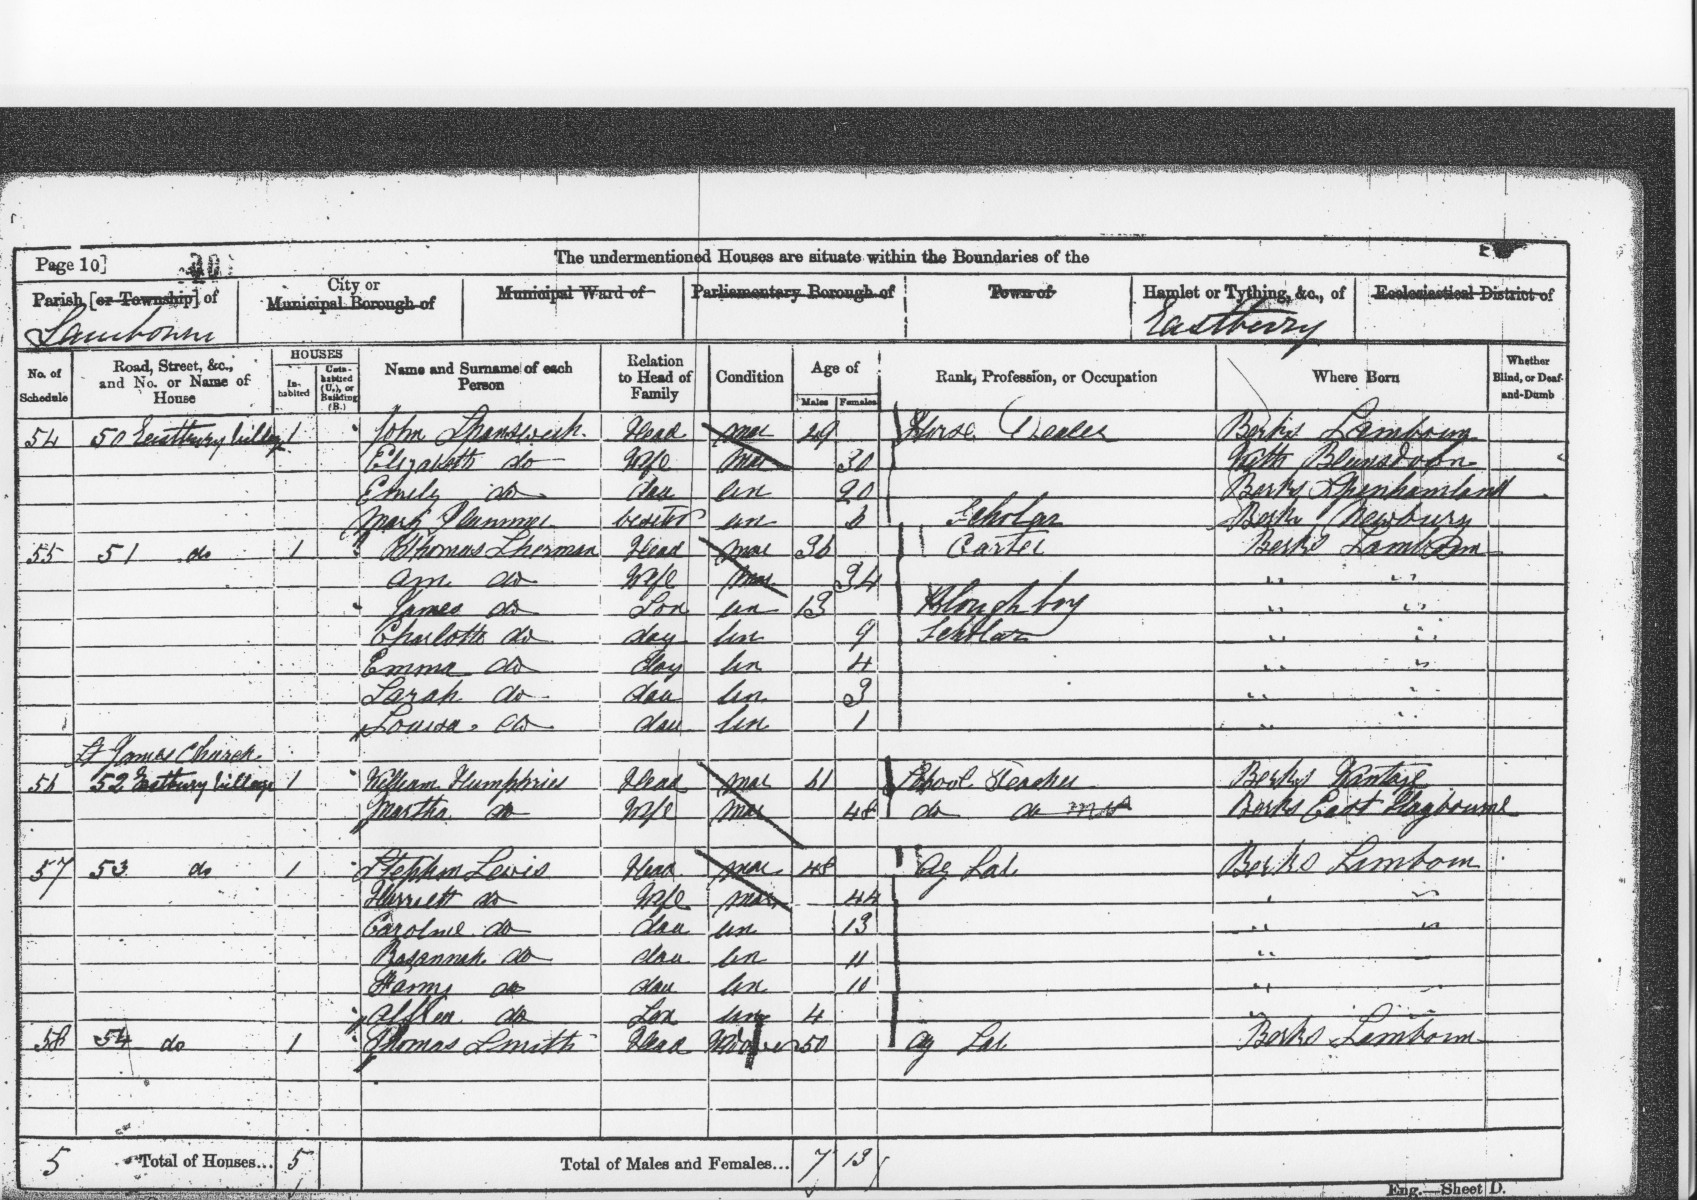 Page 10] 20
The undermentioned Houses are situate within the Boundaries of the
Parish [or Township] of
Lambourn
City or Municipal Borough of
Municipal Ward of
Parliamentary Borough of
Town of
Hamlet or Tything, &c., of
Eastbury
Ecclesiastical District of
No. of Schedule
Road, Street, &c., and No. or Name of House
HOUSES
In-habited
Name and Surname of each Person
Relation to Head of Family
Condition
Age of
Males Females
Rank, Profession, or Occupation
Where Born
Whether Blind, or Deaf-and-Dumb
54 50 Eastbury village 1 John Head mar 29 Horse Dealer Berks Lambourn
Elizabeth do Wife mar 30 Blunsdon
Emily do dau un 20 Berks Speenhamland
Mark Plummer visitor un 6 Scholar Berks Newbury
55 51 do 1 Thomas Sherman Head mar 36 Carter Berks Lambourn
Ann do Wife mar 34 " "
James do Son un 13 Plough boy " "
Charlotte do day un 9 Scholar " "
Emma do day un 4 " "
Sarah do dau un 3 " "
Louisa do dau un 1 " "
St James Church
56 52 Eastbury village 1 William Humphries Head mar 61 School Teacher Berks Wantage
Martha do Wife mar 48 do do Berks East Hagbourne
57 53 do 1 Stephen Lewis Head mar 48 Ag Lab Berks Lambourn
Harriett do Wife mar 44 " "
Caroline do dau un 13 " "
Rosannah do dau un 11 " "
Fanny do dau un 10 " "
do Son un 4 " "
58 54 do 1 Thomas Smith Head Widower 50 Ag Lab Berks Lambourn
5 Total of Houses... 5 Total of Males and Females... 7 13
Eng.—Sheet D.